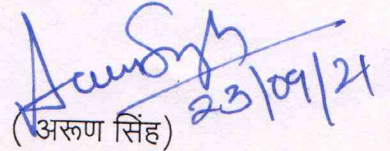 23/09/21
(अरूण सिंह)